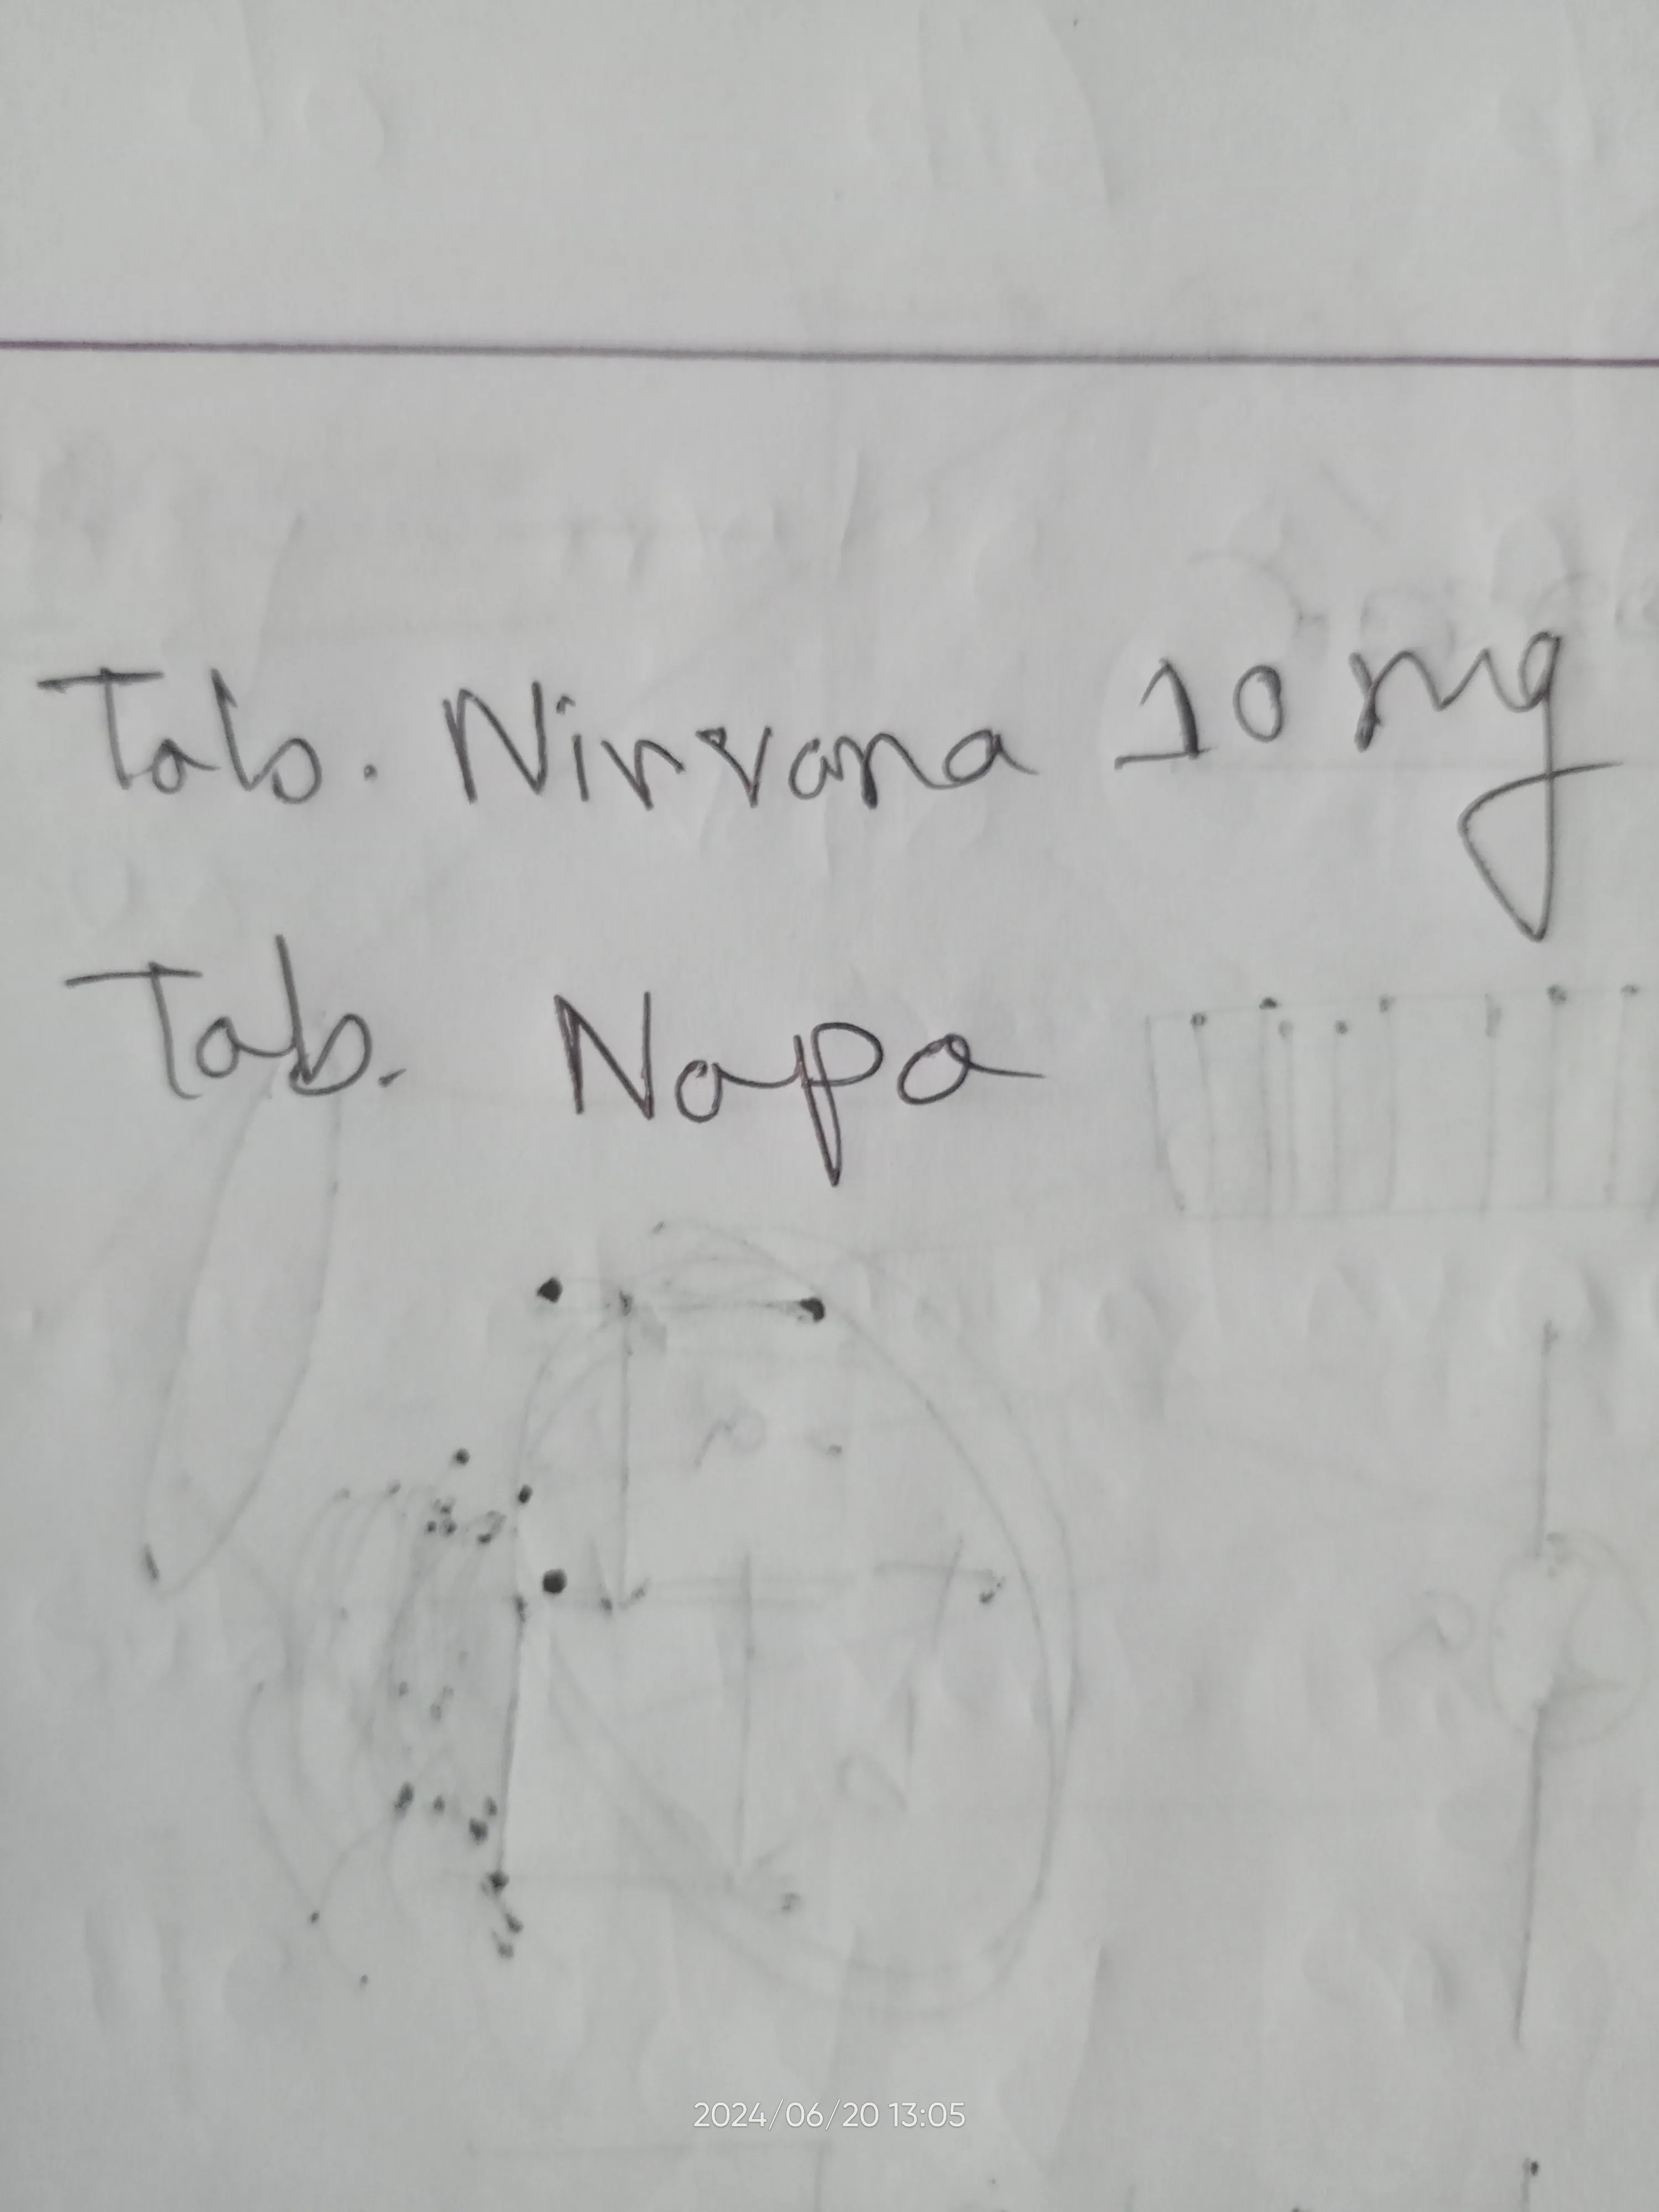 Tab. Nirvana 10 mg
Tab. Napa
2024/06/20 13:05